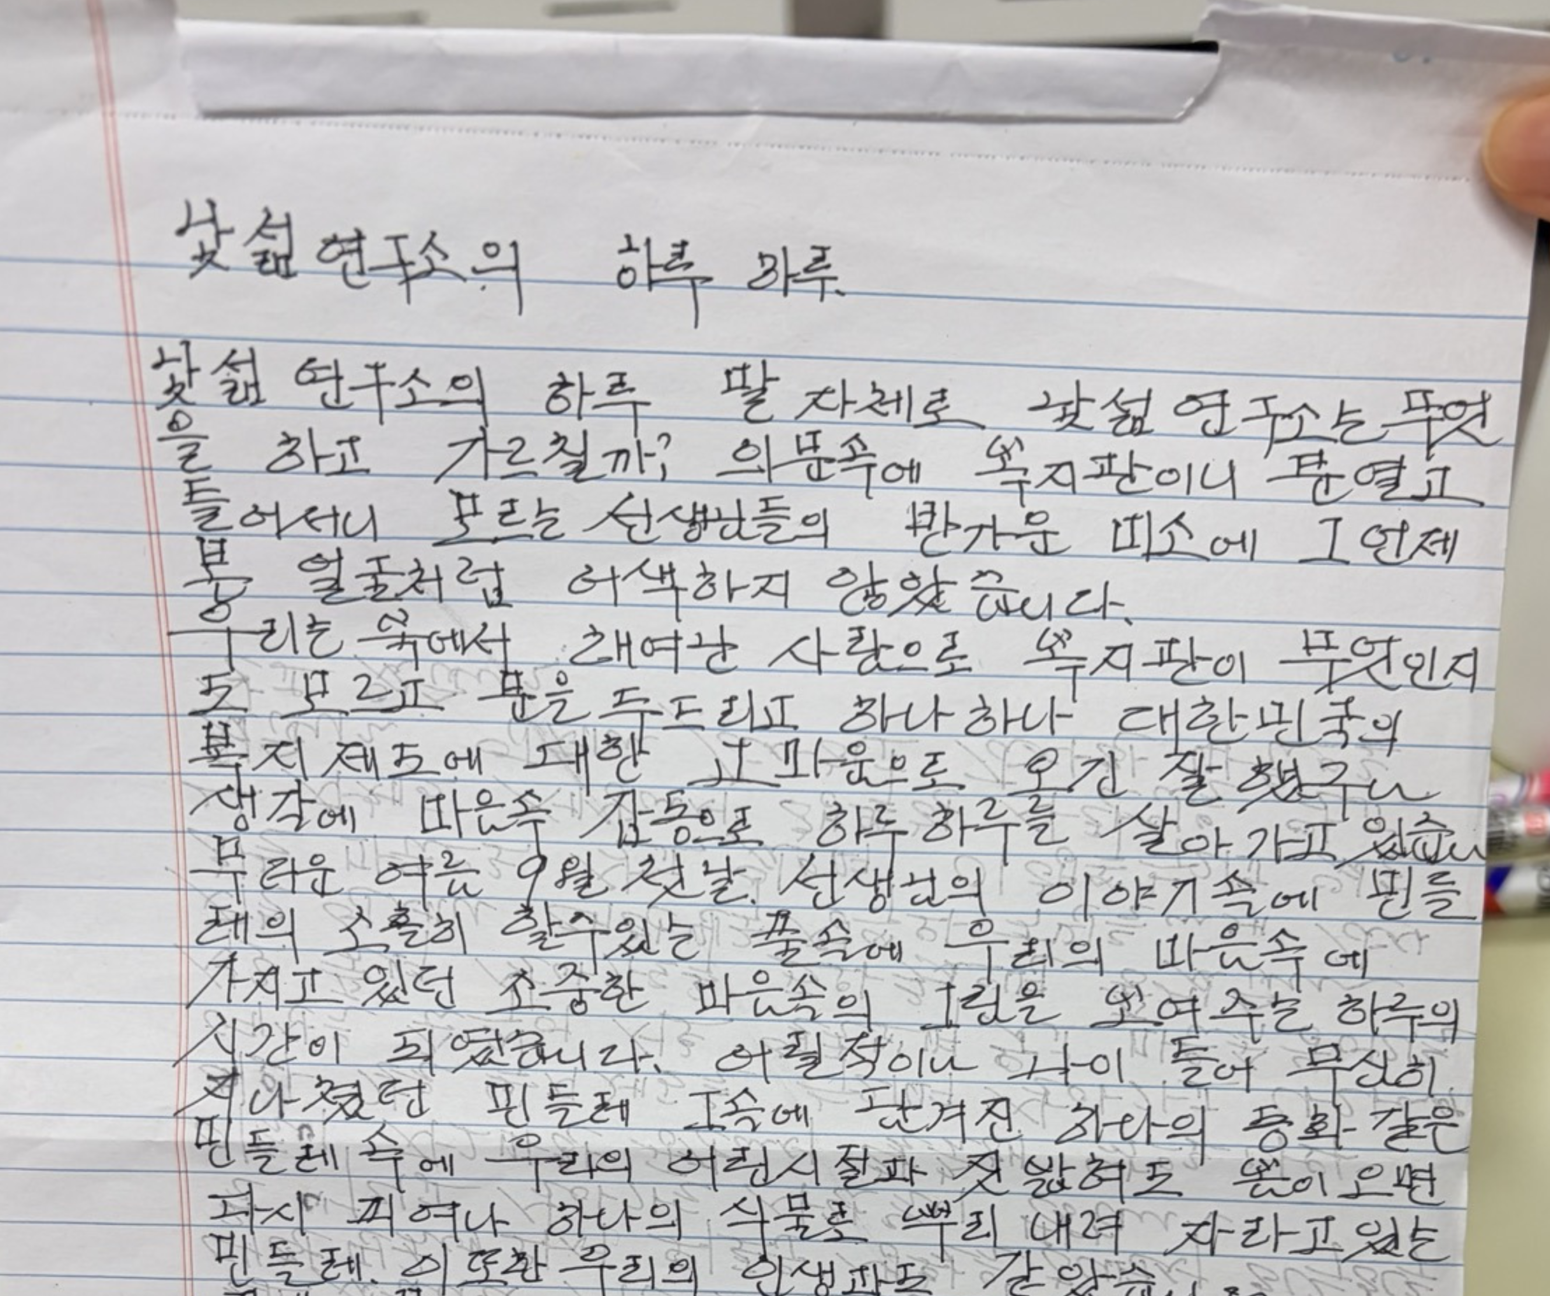 낯섦 연구소의 하루 하루.
낯섦 연구소의 하루 말 자체로 낯섦 연구소는 무엇
을 하고 가르칠까? 의문속에 쪽지판이니 문열고
들어서니 모르는 선생님들의 반가운 미소에 그 언제
봄 얼굴처럼 어색하지 않았습니다.
우리는 북에서 태여난 사람으로 쪽지판이 무엇인지
도 모르고 문을 두드리고 하나하나 대한민국의
복지 제도에 대한 고마움으로 오긴 잘 했구나
생각에 마음속 감동으로 하루하루를 살아가고 있습니
무더운 여름 9월 첫날. 선생님의 이야기속에 민들
레의 소홀히 할수있는 풀속에 우리의 마음속에
가지고 있던 소중한 마음속의 그림을 보여주는 하루의
시간이 되였습니다. 어릴적이나 나이 들어 무심히
지나쳤던 민들레 그속에 담겨진 하나의 동화 같은
민들레 속에 우리의 어린시절과 짓밟혀도 봄이오면
다시 피여나 하나의 식물로 뿌리 내려 자라고있는
민들레. 이 또한 우리의 인생과도 같았습